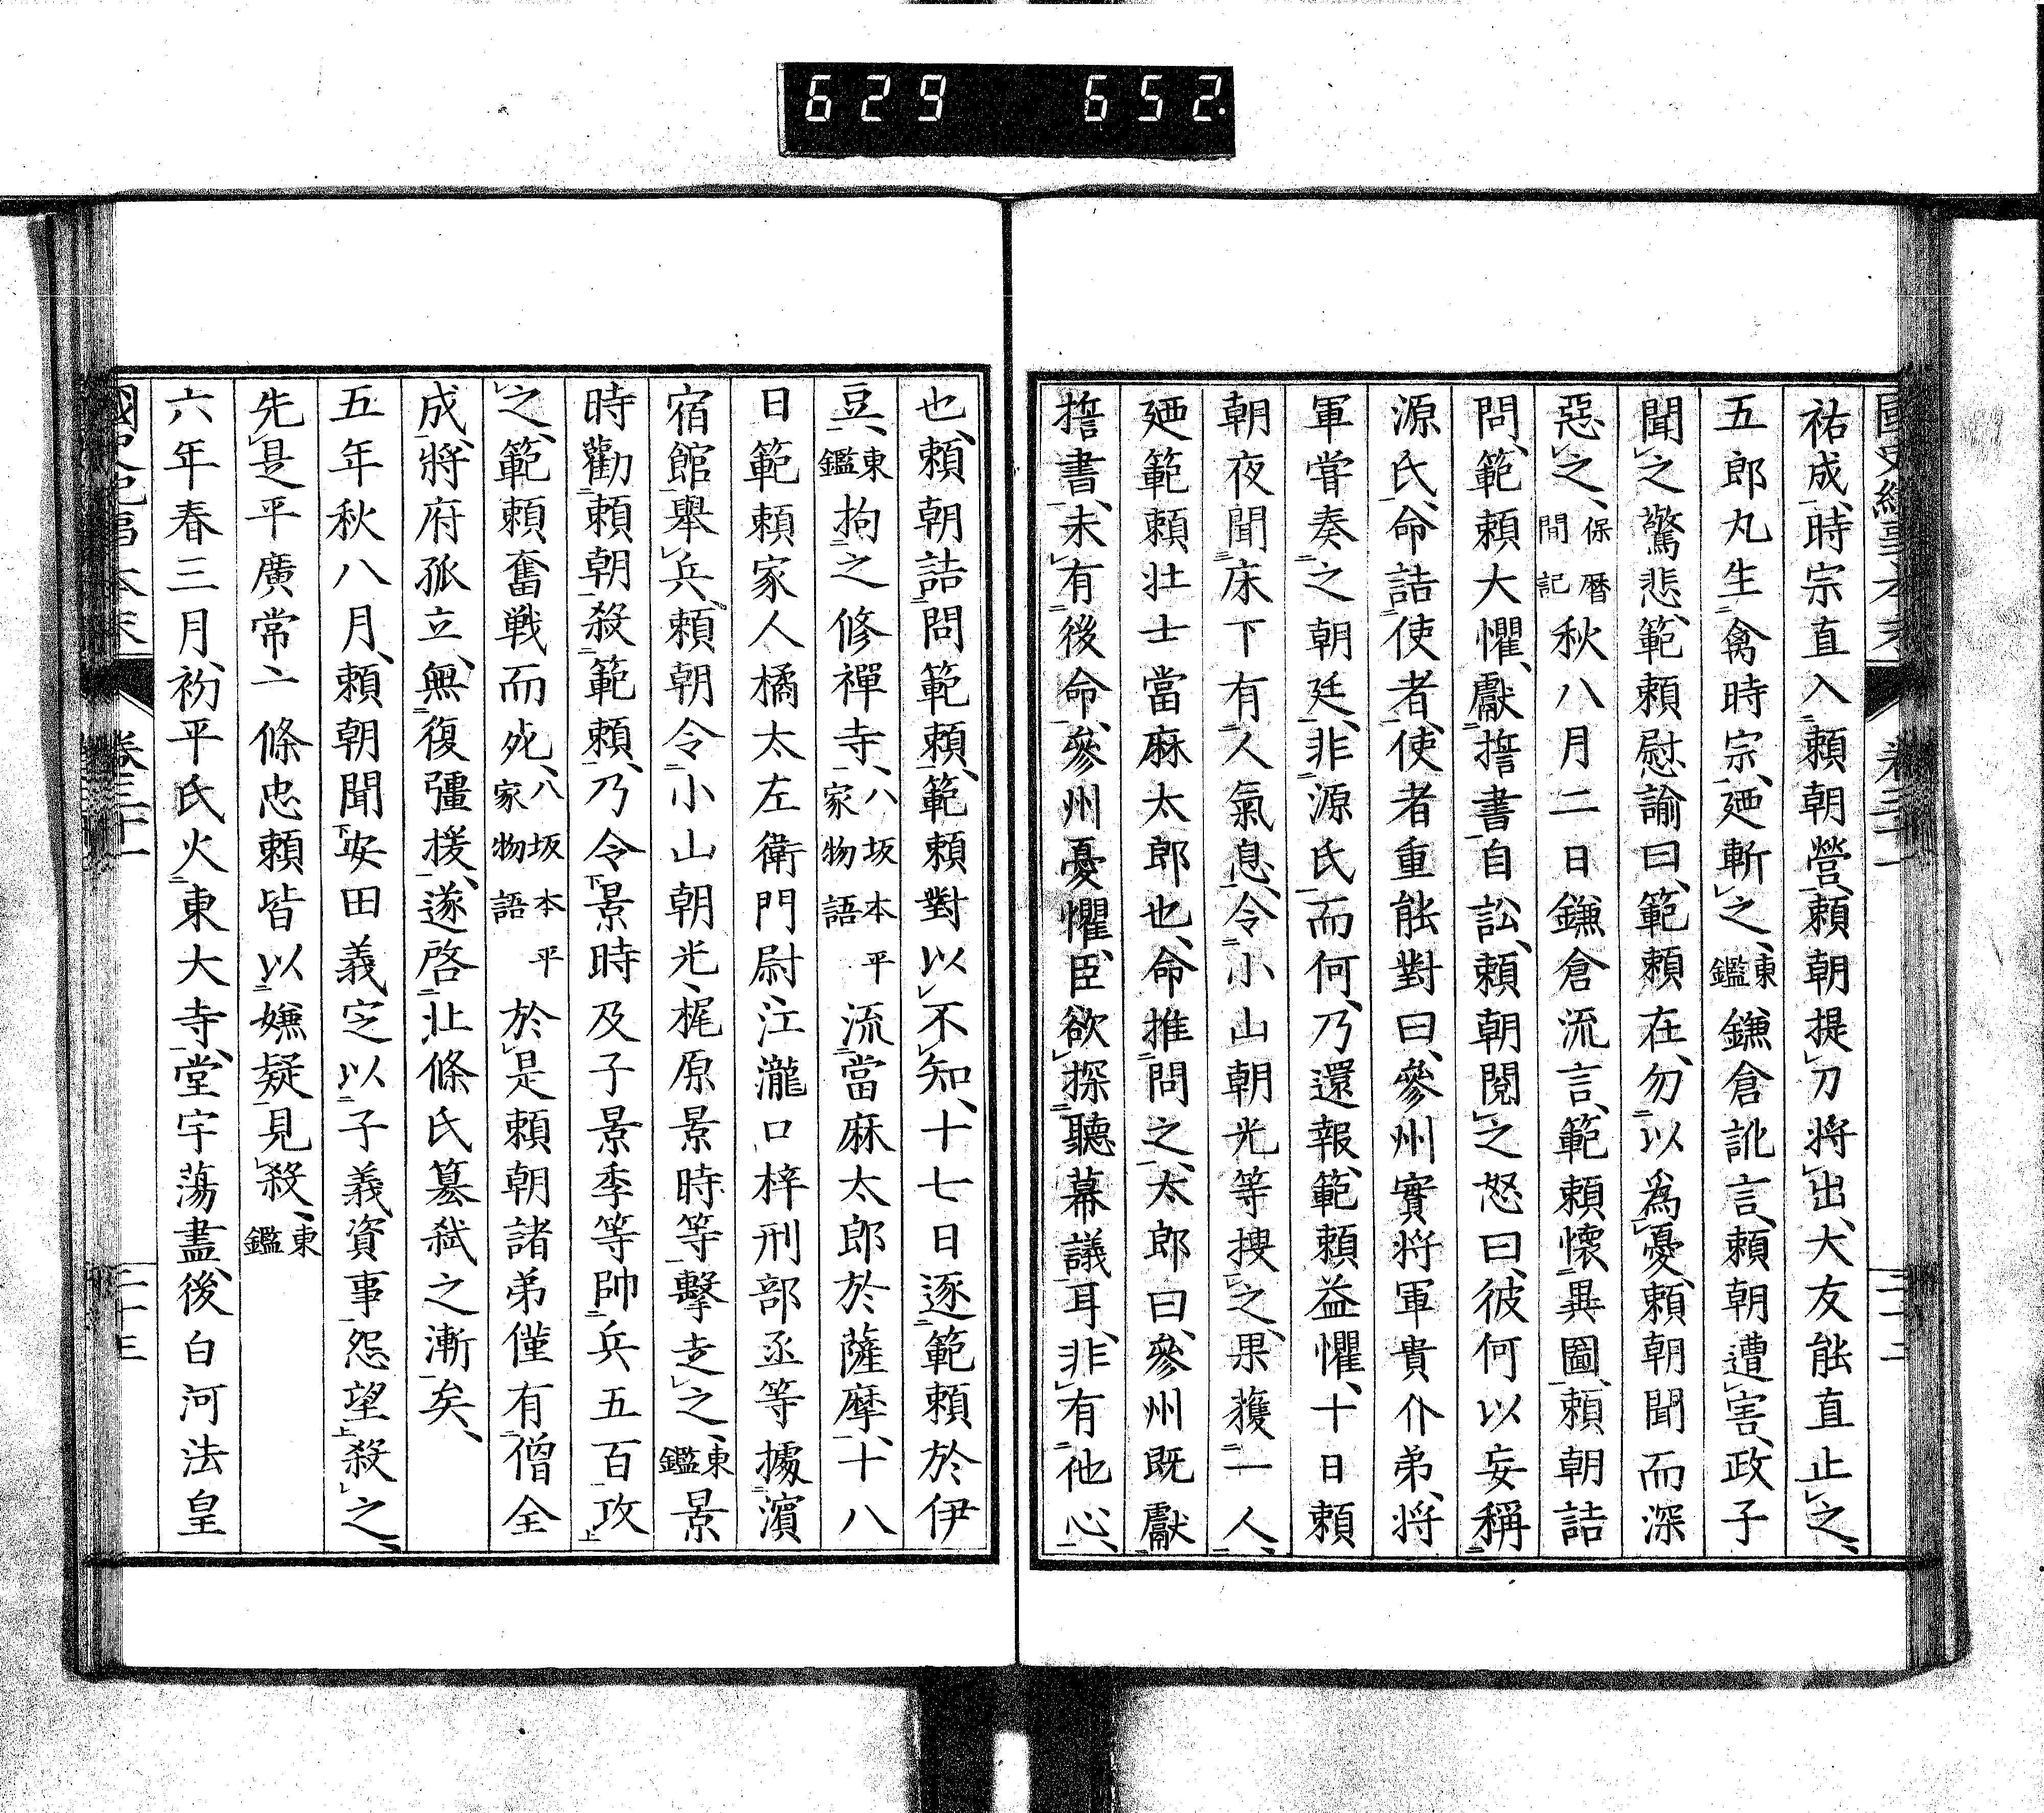 629 652.
祐成、時宗直入頼朝營、頼朝提刀將出、大友能直止之、
五郎丸生禽時宗、廼斬之、東鑑鎌倉訛言、頼朝遭害、政子
聞之驚悲、範頼慰諭曰、範頼在、勿以為憂、頼朝聞而深
惡之、保曆間記秋八月二日鎌倉流言、範頼懷異圖、頼朝詰
問、範頼大懼、獻誓書自訟、頼朝閱之怒曰、彼何以妄稱
源氏、命詰使者、使者重能對曰、參州實將軍貴介弟、將
軍甞奏之朝廷、非源氏而何、乃還報、範頼益懼、十日頼
朝夜聞床下有人氣息、令小山朝光等搜之、果獲一人、
廼範頼壯士當麻太郎也、命推問之、太郎曰、參州既獻
誓書、未有後命、參州憂懼、臣欲探聽幕議耳、非有他心、
也、頼朝詰問範頼、範頼對以不知、十七日逐範頼於伊
豆、東鑑拘之修禪寺、八坂本平家物語流當麻太郎於薩摩、十八
日範頼家人橘太左衛門尉、江瀧口梓刑部丞等據濱
宿館舉兵、頼朝令小山朝光、梶原景時等擊走之、東鑑景
時勸頼朝殺範頼、乃令景時及子景季等帥兵五百攻
之、範頼奮戰而死、八坂本平家物語於是頼朝諸弟僅有僧全
成、將府孤立、無復彊援、遂啓北條氏簒弑之漸矣、
五年秋八月、頼朝聞安田義定以子義資事怨望殺之、
先是平廣常一條忠頼皆以嫌疑見殺、東鑑
六年春三月、初平氏火東大寺、堂宇蕩盡、後白河法皇
卷三十一